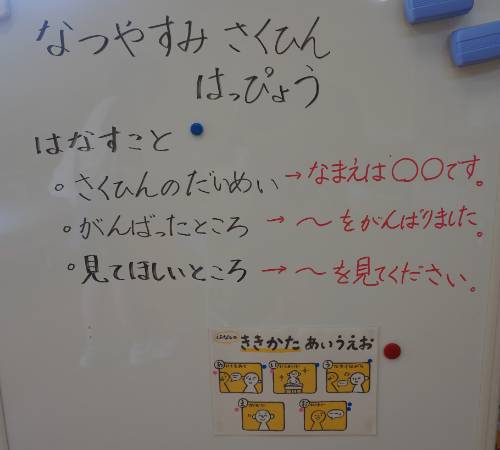 なつやすみ さくひん
はっぴょう
はなすこと
。さくひんのだいめい → なまえは〇〇です。
。がんばったところ → 〜をがんばりました。
。見てほしいところ → 〜を見てください。
ききかた あいうえお
あ
い
う
え
お